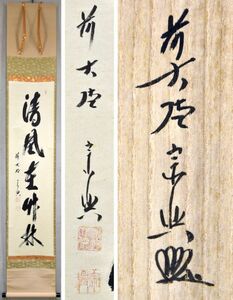 清風在竹林
前大徳 宗興
前大徳 宗興
前大徳宗興